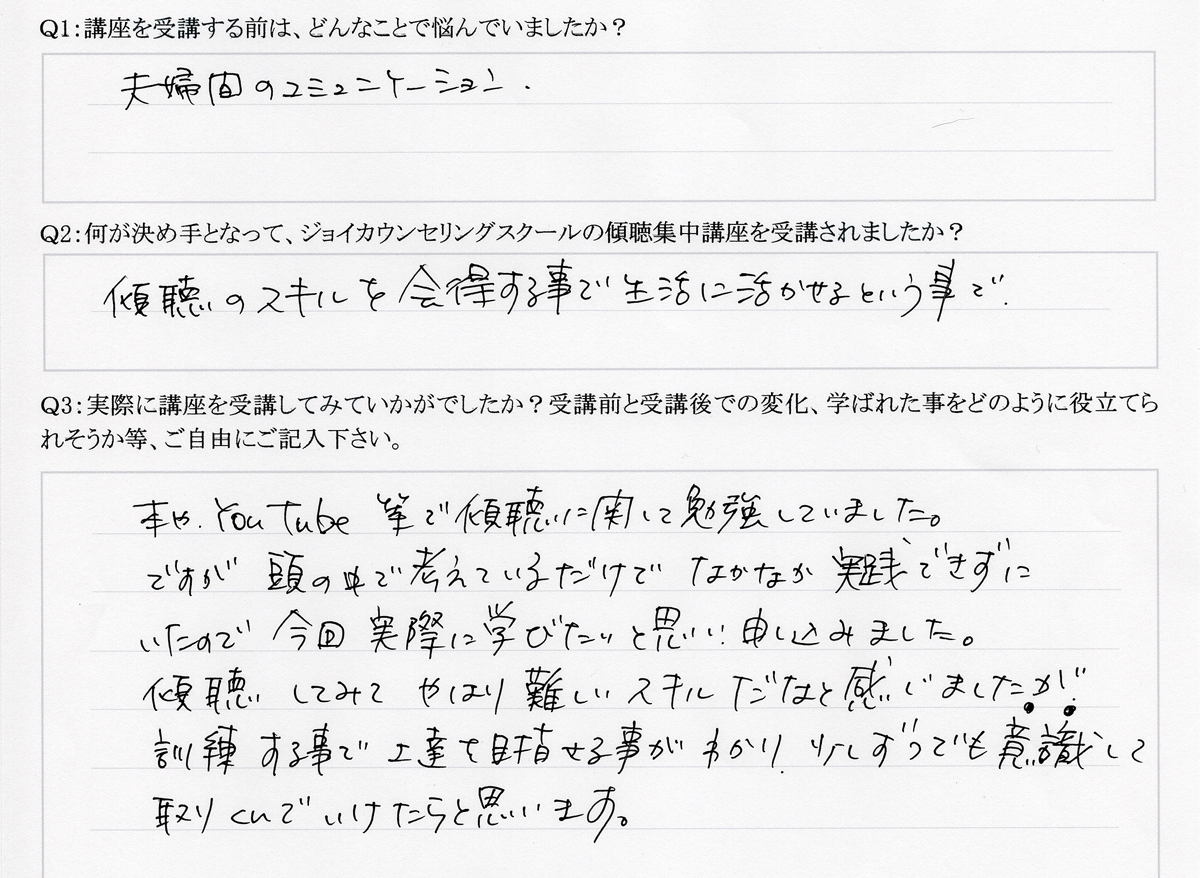 Q1：講座を受講する前は、どんなことで悩んでいましたか？
夫婦間のコミュニケーション.
Q2：何が決め手となって、ジョイカウンセリングスクールの傾聴集中講座を受講されましたか？
傾聴のスキルを会得する事で生活に活かせるという事で.
Q3：実際に講座を受講してみていかがでしたか？受講前と受講後での変化、学ばれた事をどのように役立てら
れそうか等、ご自由にご記入下さい。
本や. YouTube 等で傾聴に関して勉強していました。
ですが 頭の中で考えているだけで なかなか 実践できずに
いたので 今回 実際に学びたいと思い. 申し込みました。
傾聴 してみて やはり 難しい スキル だなと 感じましたが.
訓練 する事で 上達を目指せる事が わかり. 少しずつでも 意識して
取りくんで いけたらと思います。